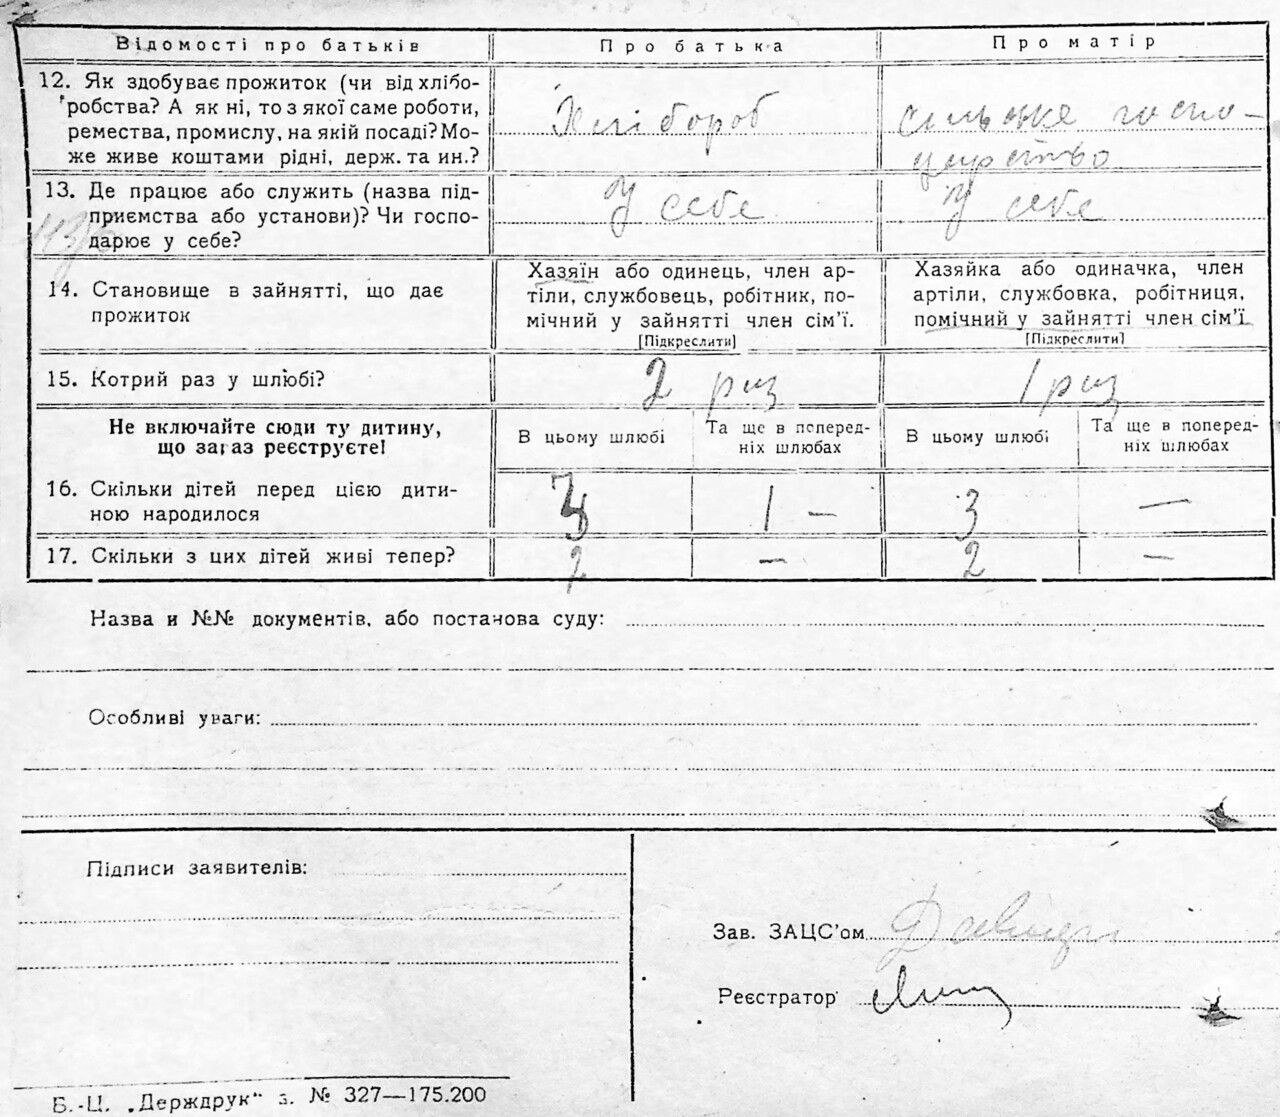 Відомості про батьків Про батька Про матір
12. Як здобуває прожиток (чи від хлібо-
робства? А як ні, то з якої саме роботи,
ремества, промислу, на якій посаді? Мо-
же живе коштами рідні, держ. та ин.?
Хлібороб
сільське госпо-
дарство
13. Де працює або служить (назва під-
приємства або установи)? Чи госпо-
дарює у себе?
У себе
У себе
14. Становище в зайнятті, що дає
прожиток
Хазяїн або одинець, член ар-
тіли, службовець, робітник, по-
мічний у зайнятті член сім'ї.
[Підкреслити]
Хазяйка або одиначка, член
артіли, службовка, робітниця,
помічний у зайнятті член сім'ї
[Підкреслити]
15. Котрий раз у шлюбі? 2 раз 1 раз
Не включайте сюди ту дитину,
що загаз реєструєте!
В цьому шлюбі
Та ще в поперед-
ніх шлюбах
В цьому шлюбі
Та ще в поперед-
ніх шлюбах
16. Скільки дітей перед цією дити-
ною народилося
3 1 – 3 —
17. Скільки з цих дітей живі тепер? 2 — 2 —
Назва и №№ документів, або постанова суду:
Особливі уваги:
Підписи заявителів:
Зав. ЗАЦС'ом
Реєстратор
Б.-Ц. „Держдрук“ з. № 327—175.200